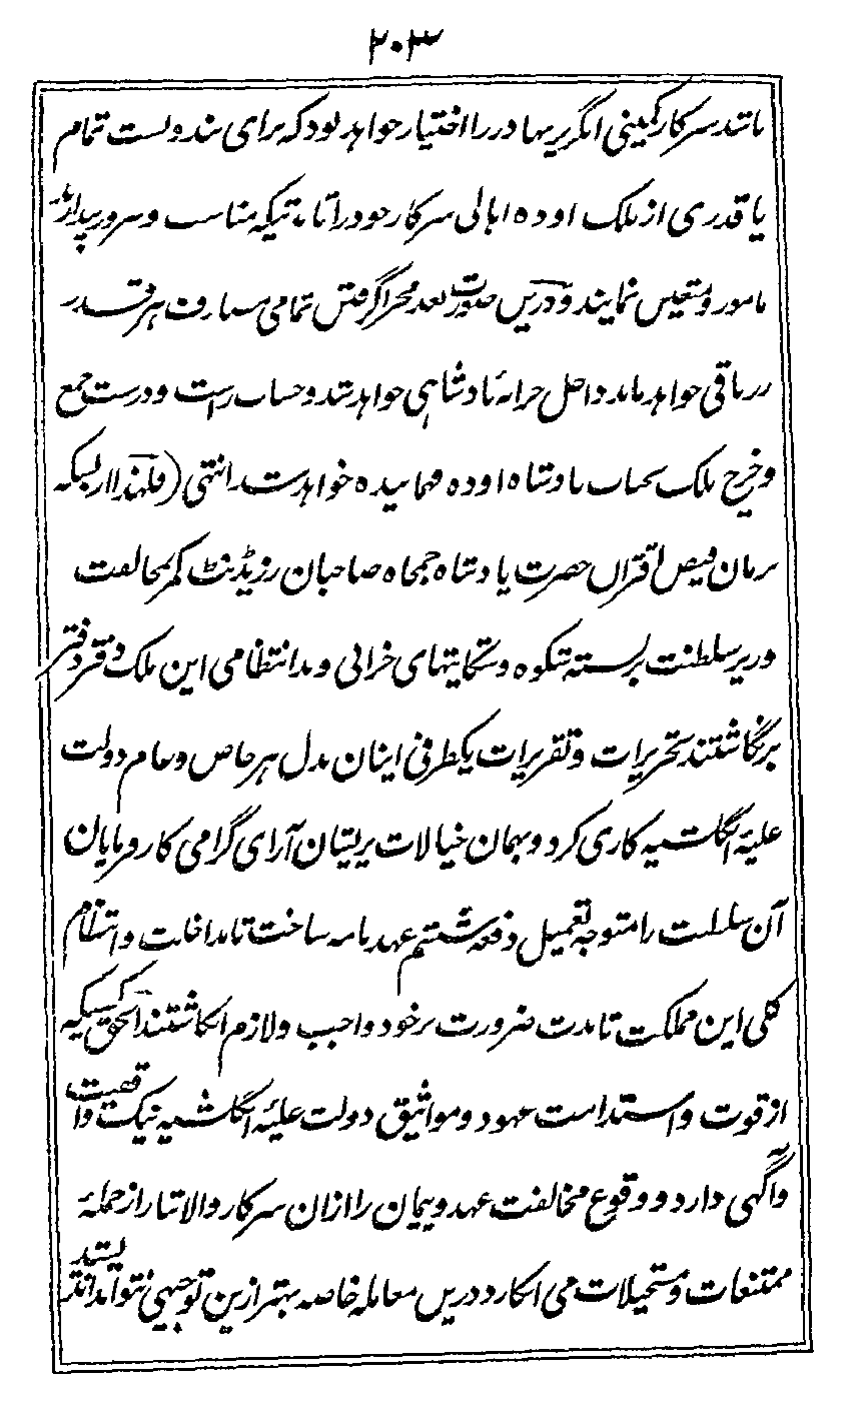 ۲۰۳
باشد سرکار کمپنی انگریز بهادر را اختیار خواهد بود که برای بندوبست تمام
یا قدری از ملک اوده اهالی سرکار خود را تا مدتیکه مناسب و ضرور پندارند
مامور و متعین نمایند و درین صورت بعد مجرا گرفتن تمامی مصارف هر قدر
زر باقی خواهد ماند داخل خزانهٔ بادشاهی خواهد شد و حساب راست و درست جمع
و خرچ ملک بجناب بادشاه اوده فهمانیده خواهد شد انتهی (فلهذا از بسکه
بزمان فیض اقتران حضرت بادشاه جمجاه صاحبان رزیڈنٹ کمر بمخالفت
وزیر سلطنت بربسته شکوه و شکایتهای خرابی و بدانتظامی این ملک دفتر دفتر
برنگاشتند تحریرات و تقریرات یکطرفی اینان بدل هر خاص و عام دولت
علیهٔ انگلشیه کاری کرد و همان خیالات پریشان آرای گرامی کارفرمایان
آن سلطنت را متوجه تعمیل دفعه ششتم عهدنامه ساخت تا مداخلت و انتظام
کلی این مملکت تا مدت ضرورت بر خود واجب و لازم انگاشتند الحق کسیکه
از قوت و استدامت عهود و مواثیق دولت علیهٔ انگلشیه نیک واقفیت
و آگهی دارد و وقوع مخالفت عهد و پیمان را ازان سرکار والاتبار از جملهٔ
ممتنعات و مستحیلات می انگارد درین معامله خاصه بهتر ازین توجیهی نتواند اندیشید